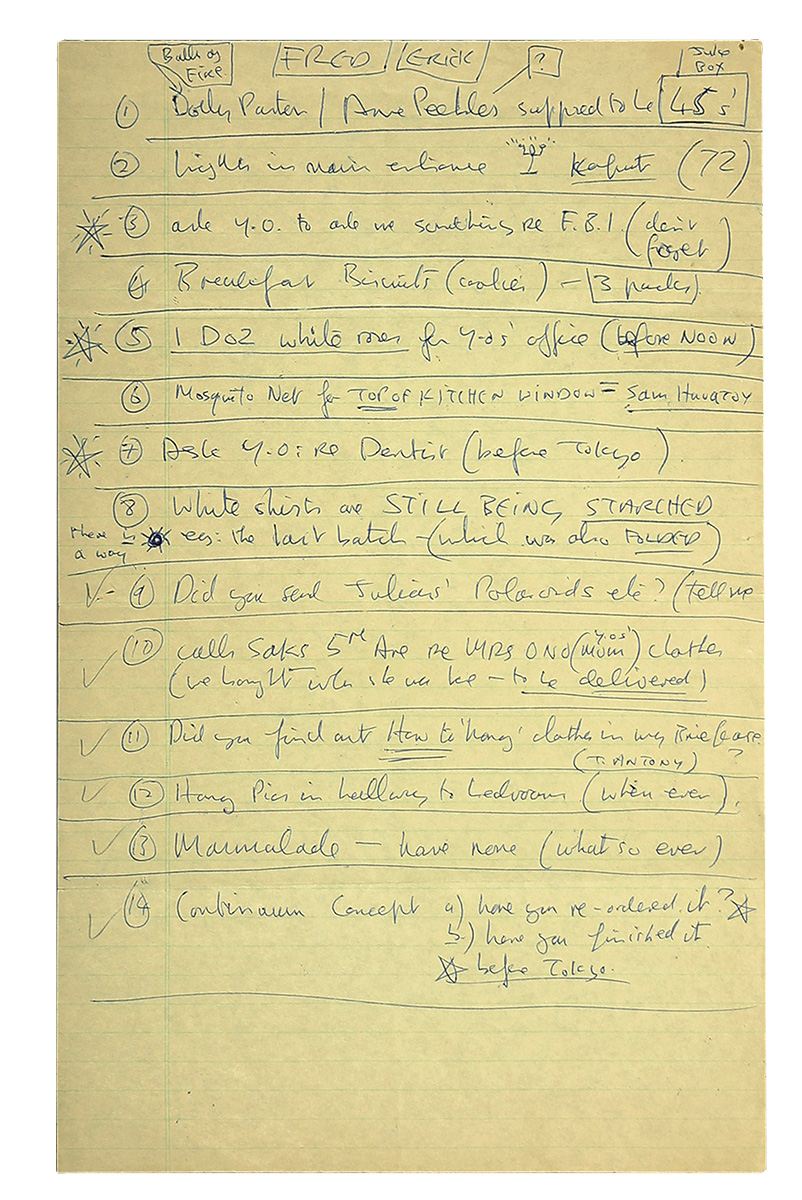 Balls of Fire FRED ERICK ? Juke Box
① Dolly Parton / Anne Peebles supposed to be 45's'
② Lights in main entrance Kaput (72)
③ ask Y.O. to ask me something re F.B.I. (don't forget)
4 Breakfast Biscuits (cookies) – 3 packs.
⑤ 1 DOZ white roses for Y-Os' office (before NOON)
⑥ Mosquito Net for TOP OF KITCHEN WINDOW = Sam
⑦ Ask Y.O: re Dentist (before Tokyo).
⑧ White shirts are STILL BEING STARCHED
there is a way eg: the last batch – (which was also FOLDED)
⑨ Did you send Julians' Polaroids etc? (tell me
⑩ calls Saks 5th Ave re MRS ONO (Y.Os' mom) clothes
(we bought when she was here – to be delivered)
⑪ Did you find out How to 'hang' clothes in my Briefcase ?
(T. ANTONY)
⑫ Hang Pics in hallway to bedrooms (when ever).
⑬ Marmalade – have none (what so ever)
⑭ Continuum Concept a) have you re-ordered it?
b.) have you finished it.
before Tokyo.